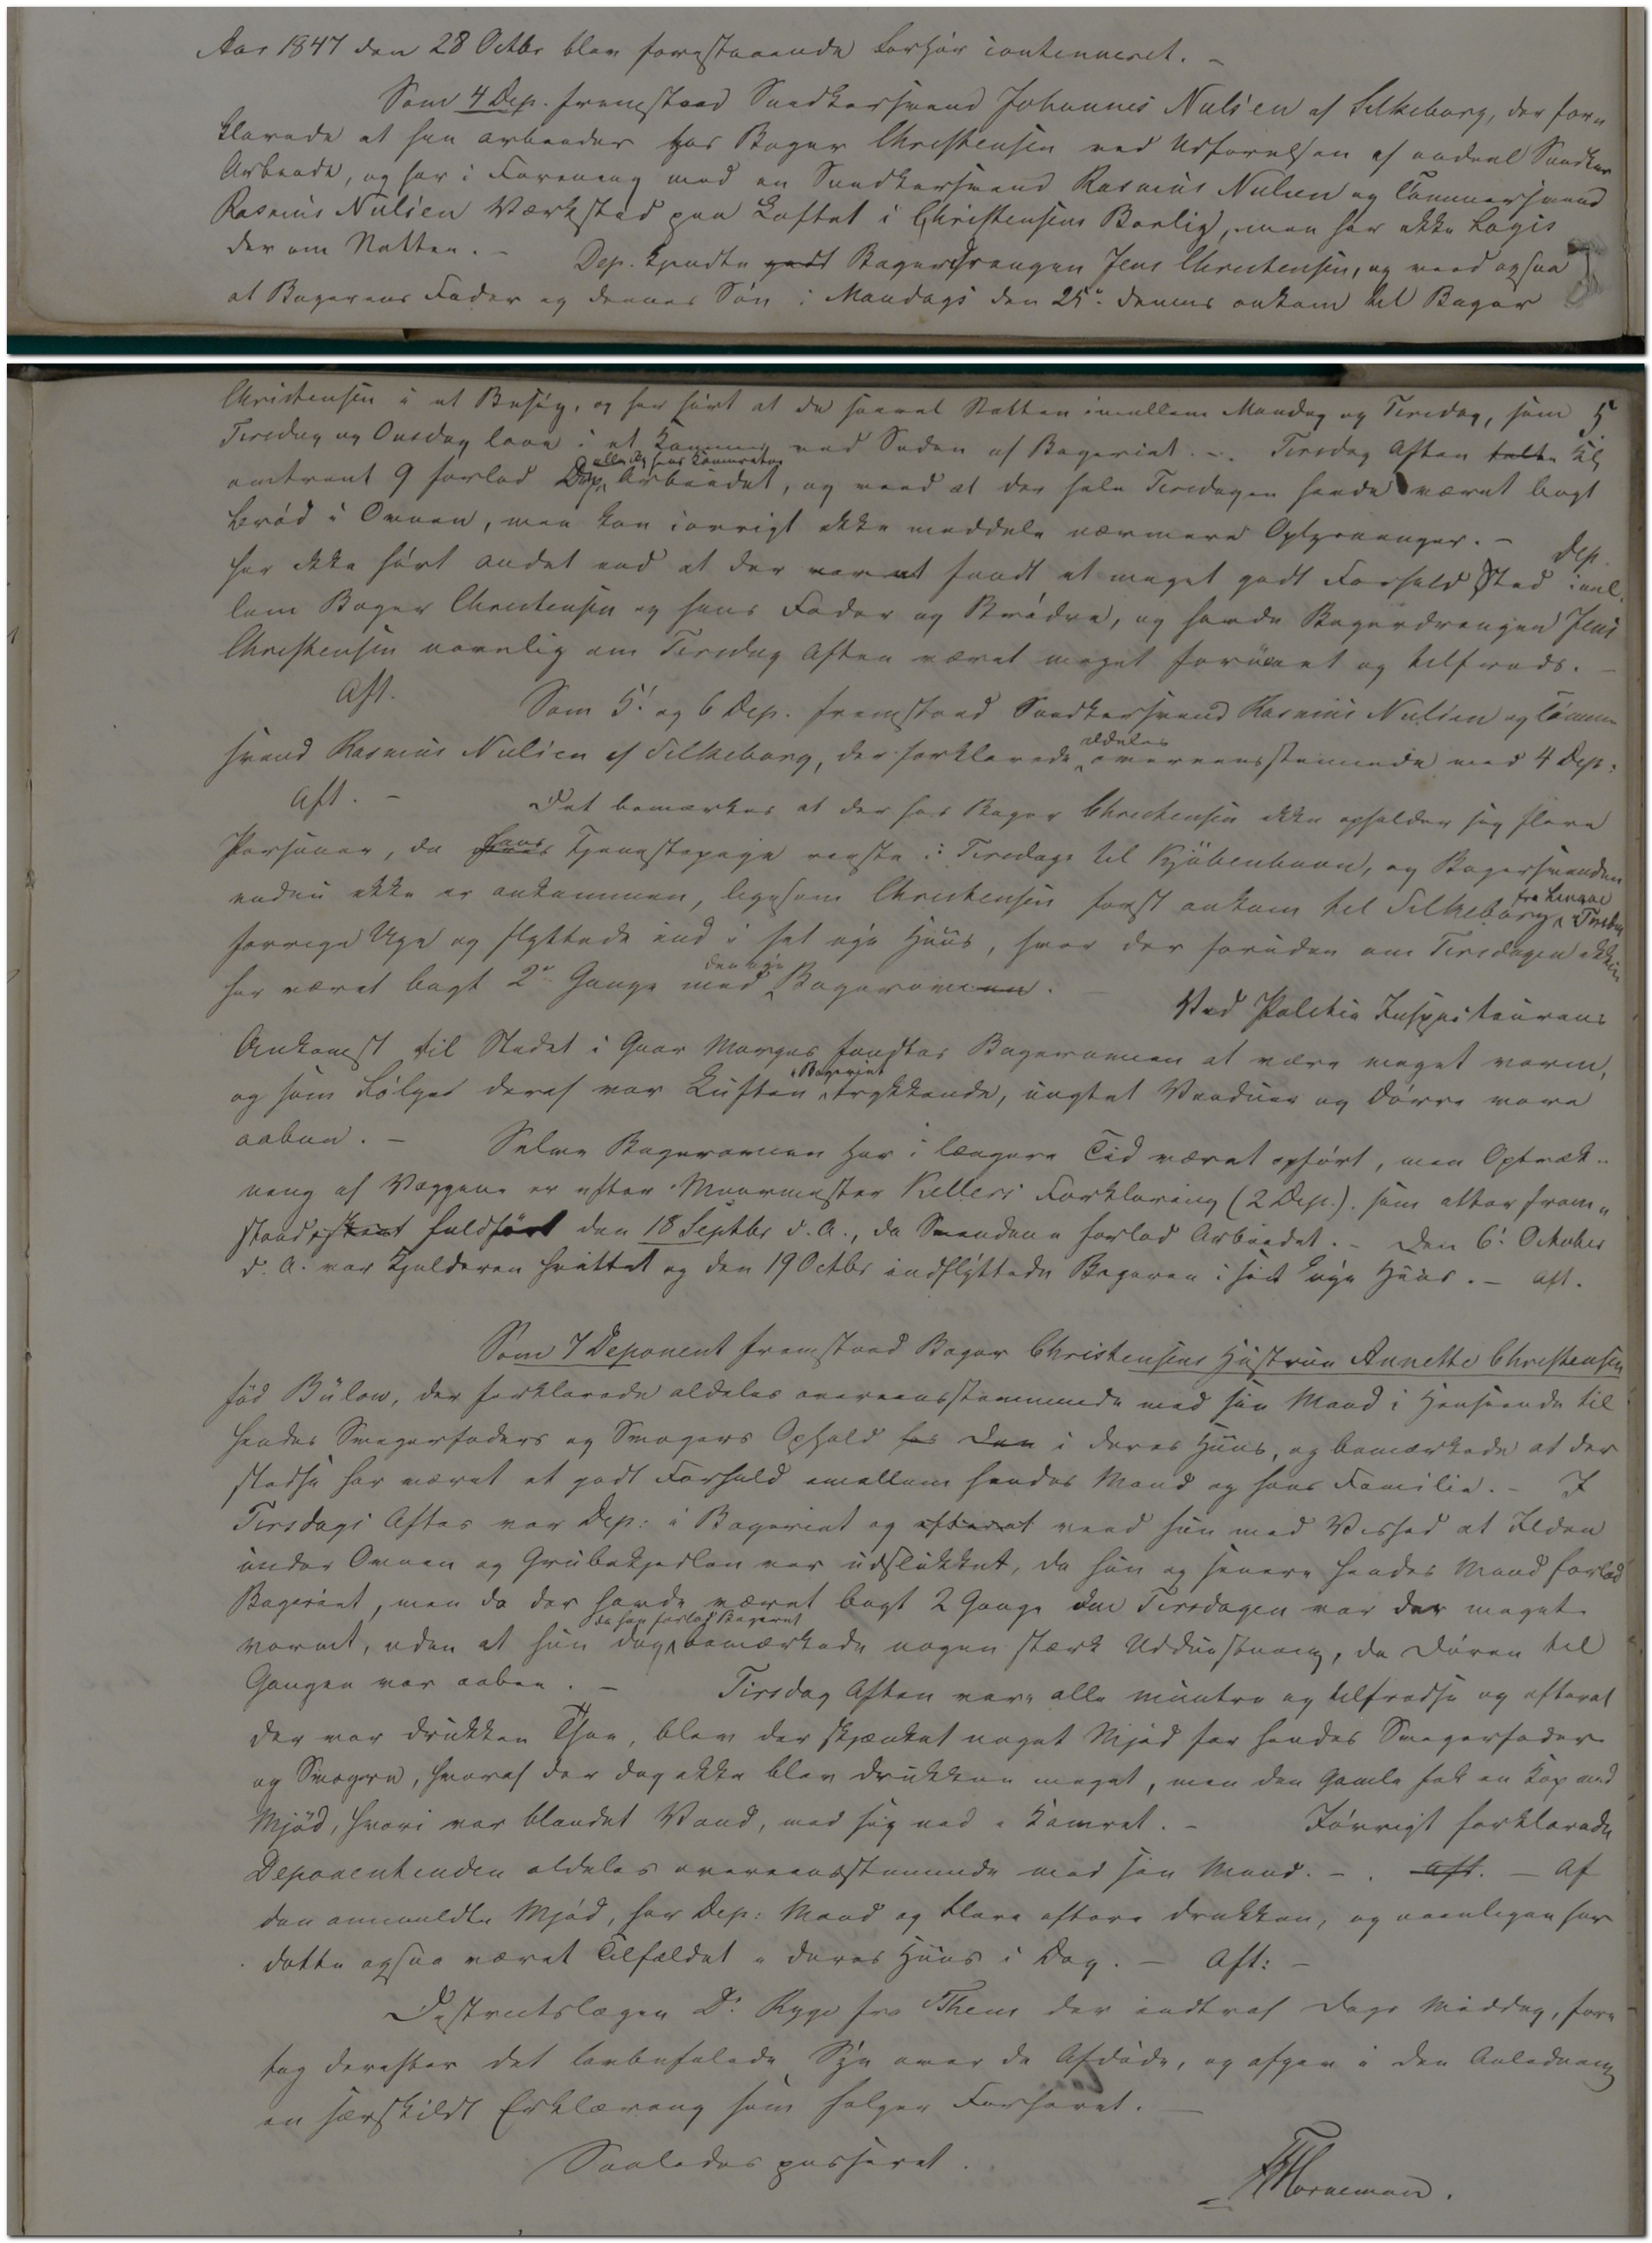 Aar 1847 den 28 Octbr blev forestaaende Forhør continueret. -
Som 4 Dep. fremstood Snedkersvend Johannes Nielsen af Silkeborg, der for„
klarede at han arbeider hos Bager Christensen ved Udførelsen af endeel Snedker
Arbeide, og har i Forening med en Snedkersvend Rasmus Nielsen og Tømmersvend
Rasmus Nielsen Værksted paa Loftet i Christensens Bolig, men har ikke Logis
der om Natten. - Dep. kjendte godt Bagerdrengen Jens Christensen, og veed ogsaa
at Bagerens Fader og dennes Søn i Mandags den 25de dennes ankom til Bager
Christensen i et Besøg, og har hørt at de saavel Natten imellem Mandag og Tirsdag, som 5
Tirsdag og Onsdag laae i et Kammer ved Siden af Bageriet. -. Tirsdag Aften Kl
omtrent 9 forlod Dep. Arbeidet, og veed at der hele Tirsdagen havde været bagt
Brød i Ovnen, men kan iøvrigt ikke meddele nærmere Oplysninger. - Dep.
har ikke hørt andet end at der fandt et meget godt Forhold Sted imel„
lem Bager Christensen og hans Fader og Brødre, og havde Bagerdrengen Jens
Christensen navnlig om Tirsdag Aften været meget fornøiet og tilfreds. -
Aft. Som 5' og 6 Dep. fremstood Snedkersvend Rasmus Nielsen og Tømmer
svend Rasmus Nielsen af Silkeborg, der forklarede aldeles overeensstemmende med 4 Dep:
Aft. - Det bemærkes at der hos Bager Christensen ikke opholder sig flere
Personer, da hans Tjenestepige reiste i Tirsdags til Kjøbenhavn, og Bagersvenden
endnu ikke er ankommen, ligesom Christensen først ankom til Silkeborg fra Tirsdag
forrige Uge og flyttede ind i sit nye Huus, hvor der foruden om Tirsdagen ikkun
har været bagt 2de Gange med den nye Bagerovn. - Ved Politie Inspecteurens
Ankomst til Stedet i Gaar Morges fandtes Bagerovnen at være meget varm,
og som Følge deraf var Luften i Bageriet trykkende, uagtet Vinduer og Dørre vare
aabne. - Selve Bagerovnen har i længere Tid været opført, men Optræk„
ning af Væggene er efter Muurmester Kellers Forklaring (2 Dep.). som atter frem„
stood fuldført den 18 Septbr d. A., da Svendene forlod Arbeidet. - Den 6' October
d. A. var Kjelderen hvittet og den 19 Octbr indflyttede Bageren i sit nye Huus. - Aft.
Som 7 Deponent fremstood Bager Christensens Hustrue Annette Christensen
fød Bülow, der forklarede aldeles overeensstemmende med sin Mand i Henseende til
hendes Svigerfaders og Svogers Ophold hos den i deres Huus, og bemærkede at der
stedse har været et godt Forhold emellem hendes Mand og hans Familie. - I
Tirsdags Aftes var Dep: i Bageriet og efterat veed hun med Vished at Ilden
under Ovnen og Grubekjedlen var udslukket, da hun og senere hendes Mand forlod
Bageriet, men da der havde været bagt 2 Gange om Tirsdagen var der meget
varmt, uden at hun dog da hun forlod Bageriet bemærkede nogen stærk Uddunstning, da Døren til
Gangen var aaben. - Tirsdag Aften vare alle muntre og tilfredse og efterat
der var drukken Thee, blev der skjænket noget Mjød for hendes Svigerfader
og Svogere, hvoraf der dog ikke blev drukken meget, men den Gamle fik en Kop med
Mjød, hvori var blandet Vand, med sig ned i Kamret. - Iøvrigt forklarede
Deponentinden aldeles overeensstemmende med sin Mand. -. Aft. - Af
den anmeldte Mjød, har Dep: Mand og Flere oftere drukken, og har
dette ogsaa været Tilfældet i deres Huus i Dag. - Aft: -
Districtslægen Dr. Ryge fra Them der indtraf Dags Middag, fore„
tog derefter det lovbefalede Syn over de Afdøde, og afgav i den Anledning
en særskildt Erklæring som følger Forhøret. -
Saaledes passeret.
Horneman.